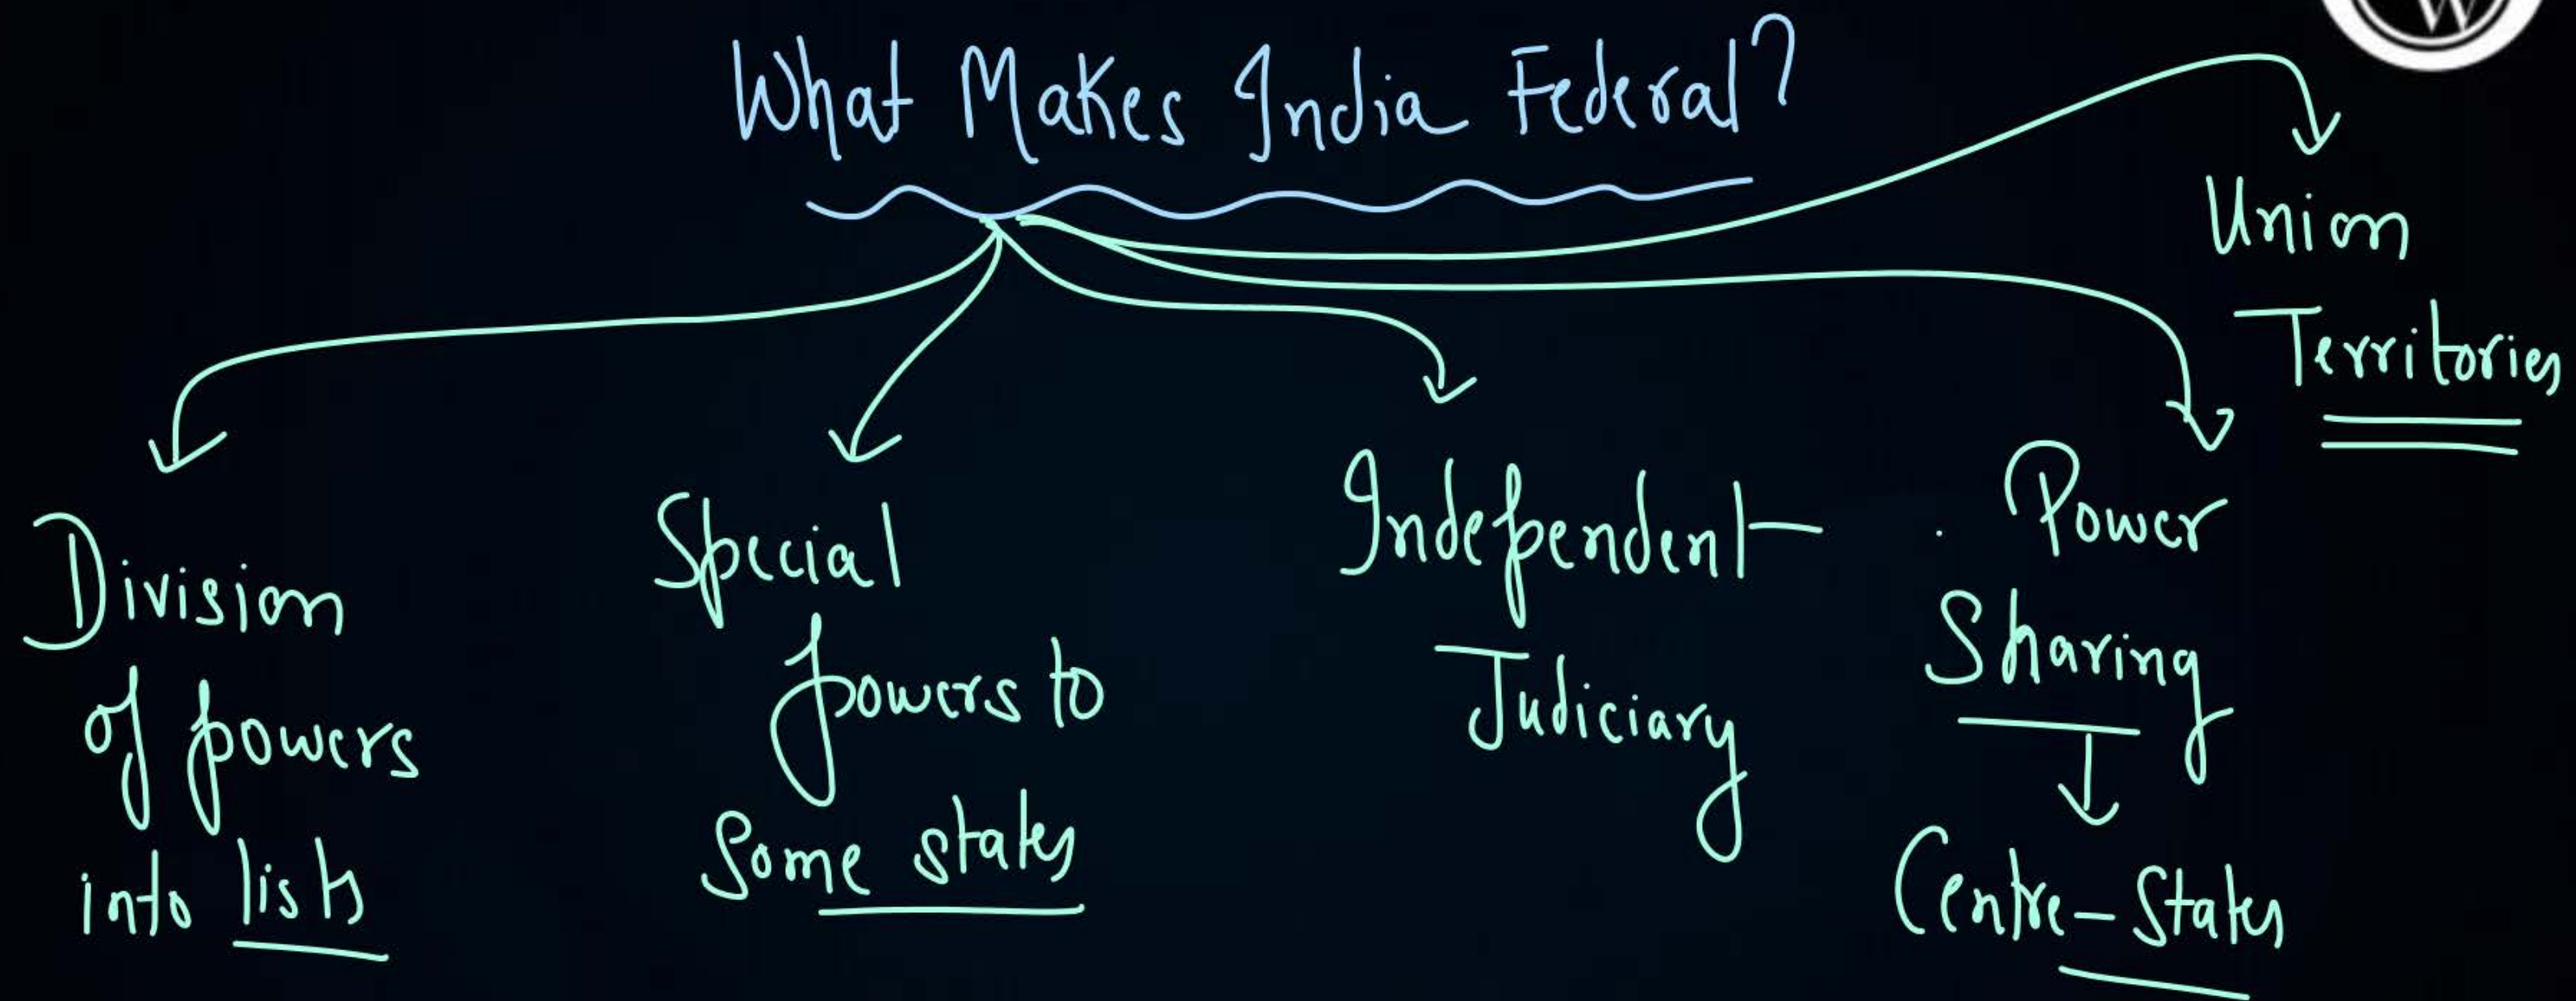 W
What Makes India Federal?
Division
of powers
into lists
Special
powers to
Some states
Independent
Judiciary
Power
Sharing
Centre-States
Union
Territories